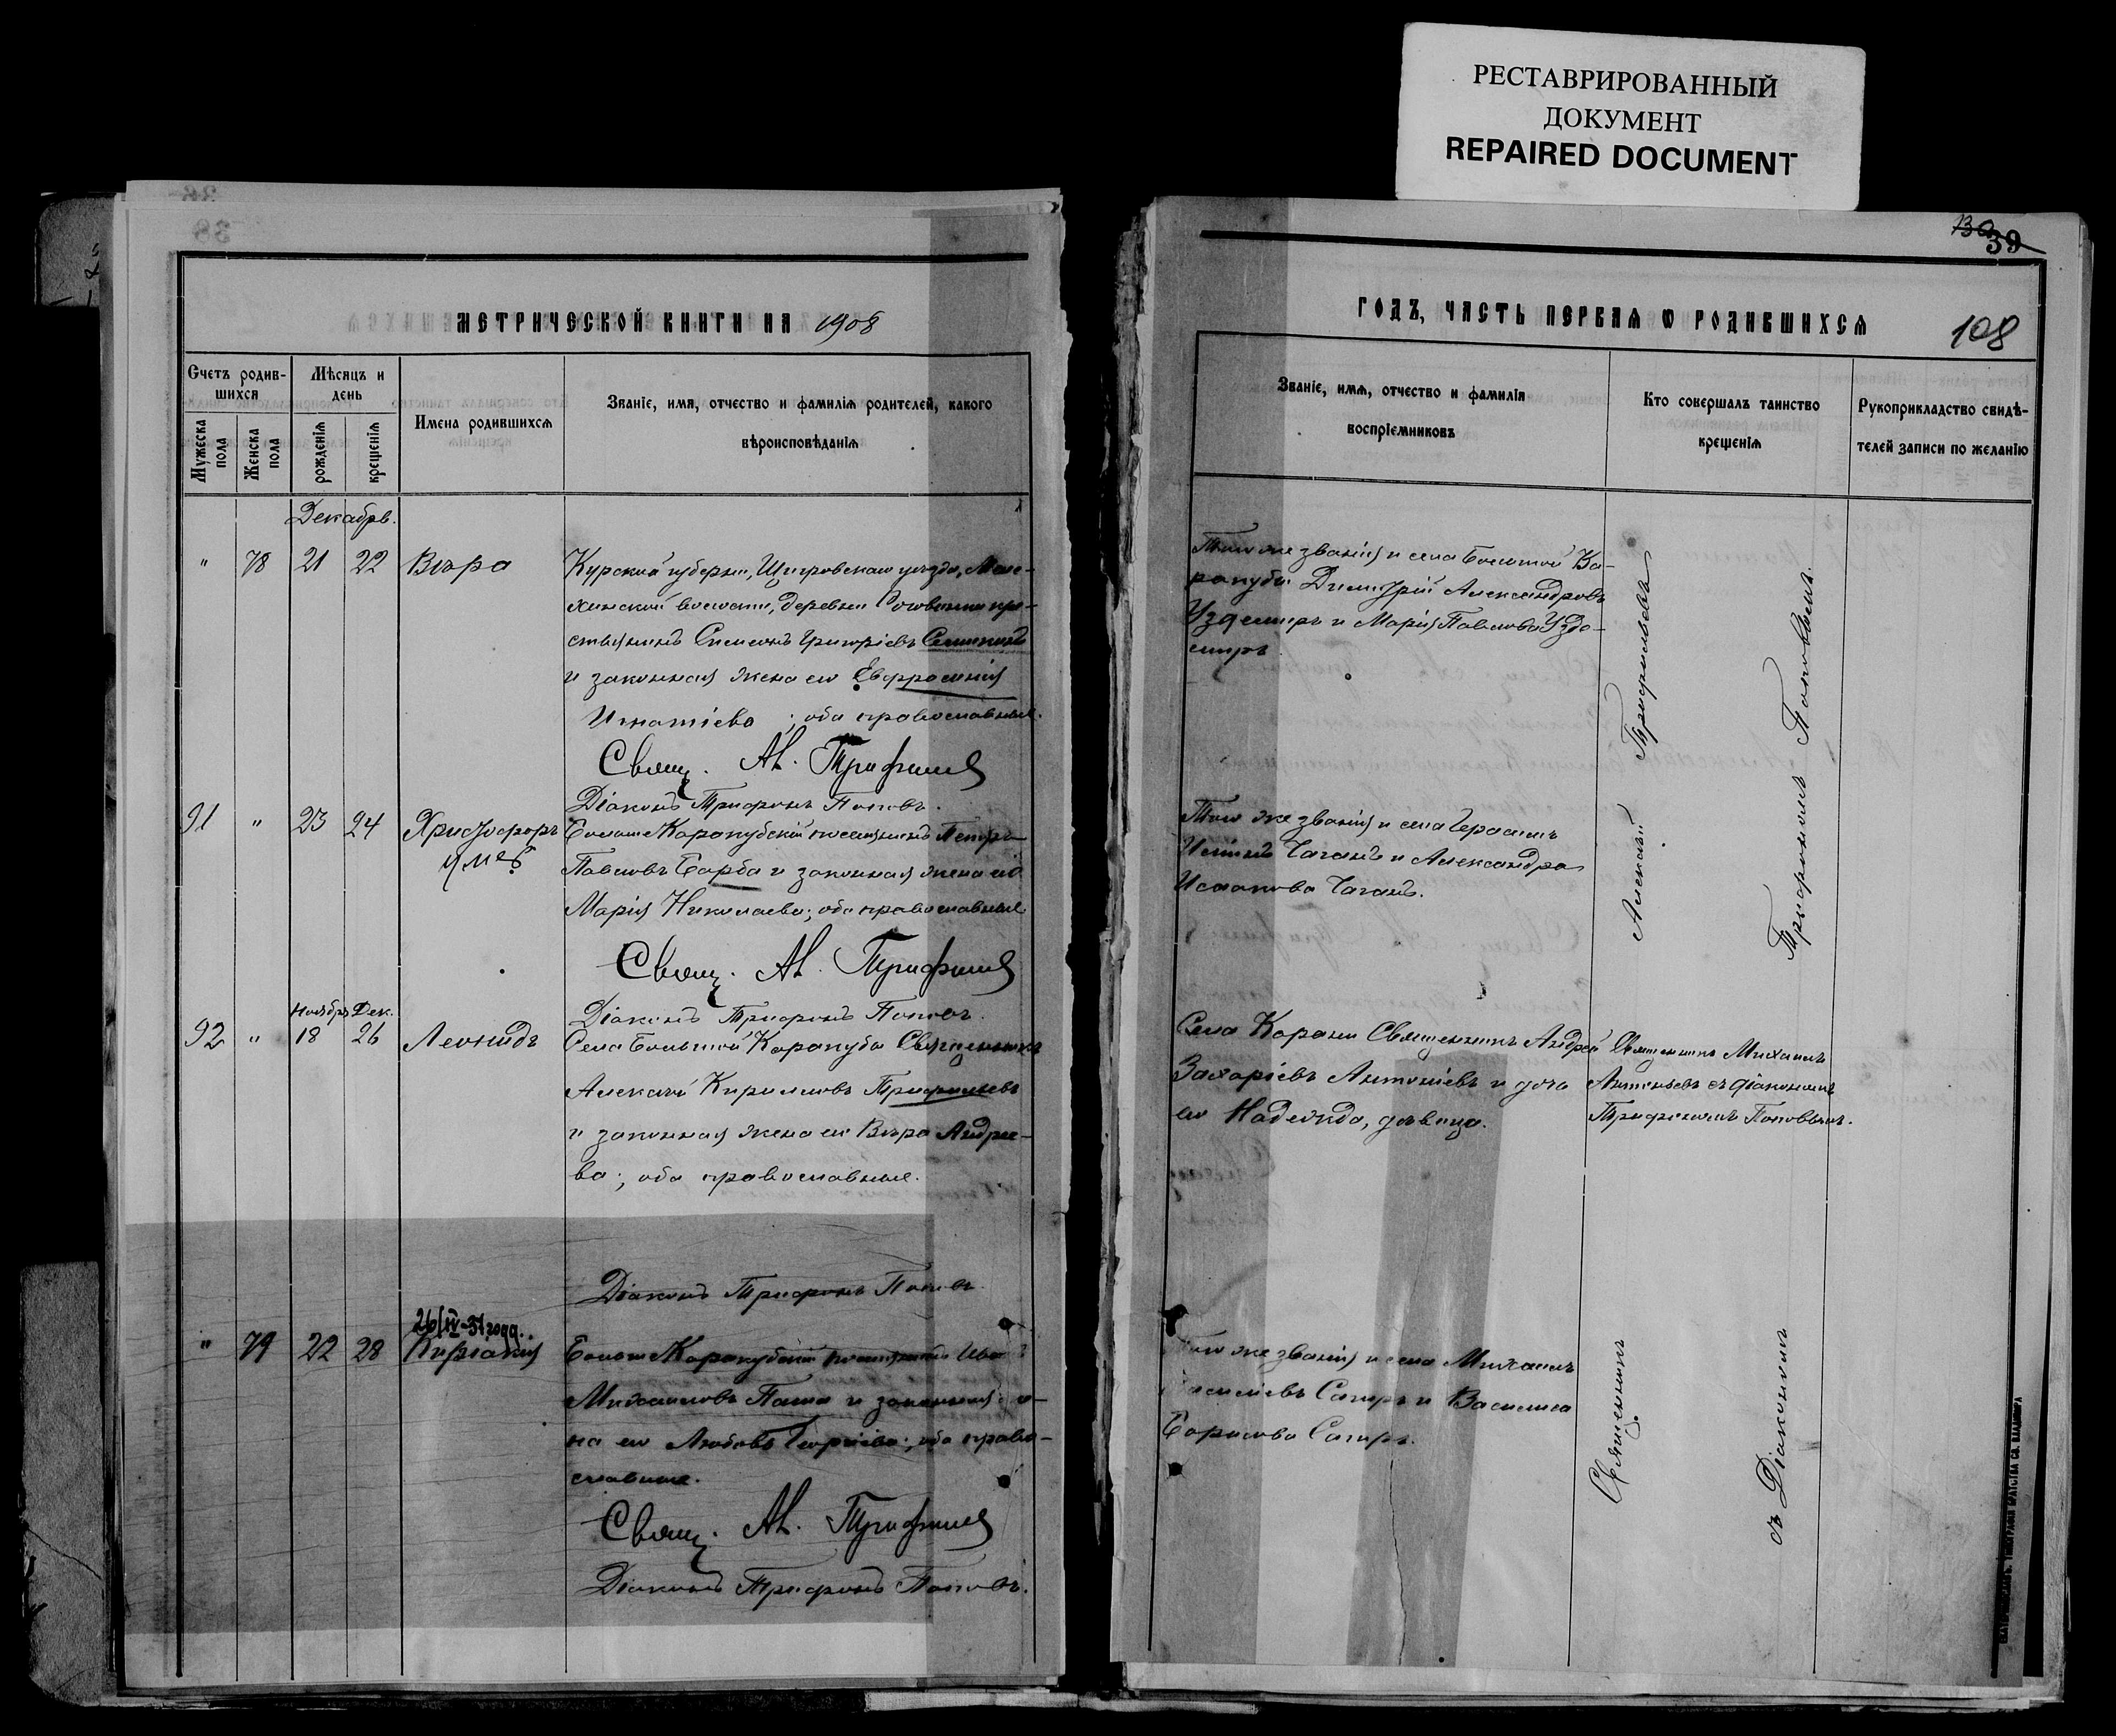 РЕСТАВРИРОВАННЫЙ
ДОКУМЕНТ
REPAIRED DOCUMENT
38
МЕТРИЧЕСКОЙ КНИГИ НА 1908
Счетъ родив-
шихся
Мѣсяцъ и
день
Мужеска
пола
Женска
пола
рожденія
крещенія
Имена родившихся
Званіе, имя, отчество и фамилія родителей, какого
вѣроисповѣданія
Декабрь.
" 78 21 22 Вѣра
Курской губерніи, Щигровскаго уѣзда,
волости, деревни кре-
стьянинъ Симеонъ Григоріевъ
и законная жена его Евфросинія
Игнатіева; оба православные.
Свящ. Ал. Трифильев
Діаконъ Трифонъ Поповъ.
91 " 23 24 Христофоръ
умер
Больше-Каракубскій поселянинъ Петръ
Павловъ Барба и законная жена его
Марія Николаева; оба православные
Свящ. Ал. Трифильев
Діаконъ Трифонъ Поповъ.
Ноябрь Дек.
92 " 18 26 Леонидъ
Села Большой Каракубы Священникъ
Алексій Кирилловъ Трифильевъ
и законная жена его Вѣра Андрее-
ва; оба православные.
Діаконъ Трифонъ Поповъ
26/IV-51 года.
" 79 22 28 Киріакія
Больше-Каракубскій поселянинъ
Михаиловъ Папа и законная
на его Любовь Георгіева; оба право-
славные.
Свящ. Ал. Трифильев
Діаконъ Трифонъ Поповъ.
39
ГОДЪ, ЧАСТЬ ПЕРВАЯ О РОДИВШИХСЯ
108
Званіе, имя, отчество и фамилія
воспріємниковъ
Кто совершалъ таинство
крещенія
Рукоприкладство свидѣ-
телей записи по желанію
Того же званія и села Большой Ка-
ракубы Димитрій Александровъ
Уздемиръ и Марія Павлова Узде-
миръ
Того же званія и села Герасимъ
Чаганъ и Александра
Исаакова Чаганъ.
Алексій Трифильевъ
Трифономъ Поповымъ.
Села Карани Священникъ Андрей
Захаріевъ Антоніевъ и дочь
его Надежда, дѣвица.
Священникъ Михаилъ
Антоньевъ съ діакономъ
Трифономъ Поповымъ.
же званія и села Михаилъ
Сагиръ и Василиса
Борисова Сагиръ.
Священникъ
съ Діакономъ